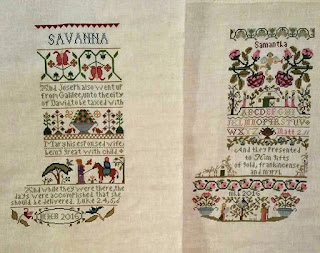 SAVANNA
And Joseph also went up
from Galilee, unto the city
of David to be taxed with
Mary his espoused wife,
being great with child
And while they were there, the
days were accomplished that she
should be delivered. Luke 2.4,5,6
2016
Samantha
ABCDEFGH
IJKLMNOP
QRSTUV
WXYZ
And they presented
to Him Gifts
of Gold, frankincense
and myrrh
2016